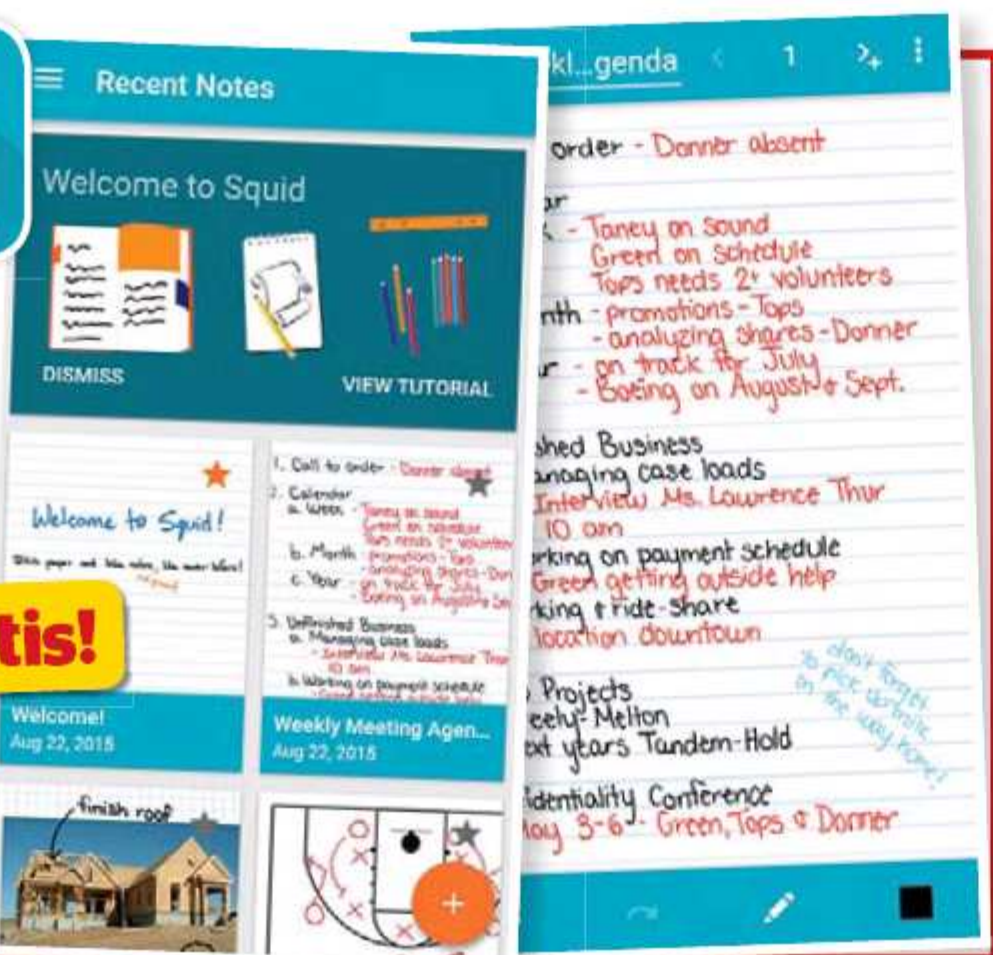 Recent Notes
Welcome to Squid
DISMISS
VIEW TUTORIAL
Welcome to Squid!
1. Call to order - Donner absent
2. Calendar
a. Week - Taney on sound
Green on schedule
Tops needs 2+ volunteers
b. Month - promotions - Tops
- analyzing shares - Don
c. Year - on track for July
- Boeing on August & Se
3. Unfinished Business
a. Managing case loads
- Interview Ms. Lawrence Thur
10 am
b. Working on payment schedule
- Green getting outside help
tis!
Welcome!
Aug 22, 2015
Weekly Meeting Agen...
Aug 22, 2015
finish roof
kl...genda 1
order - Donner absent
ar
- Taney on sound
Green on schedule
Tops needs 2+ volunteers
nth - promotions - Tops
- analyzing shares - Donner
r - on track for July
- Boeing on August & Sept.
shed Business
anaging case loads
Interview Ms. Lawrence Thur
10 am
rking on payment schedule
Green getting outside help
king & ride-share
location downtown
don't forget
to pick up
on the way home!
Projects
eely-Melton
ext years Tandem-Hold
identiality Conference
ay 3-6 - Green, Tops & Donner